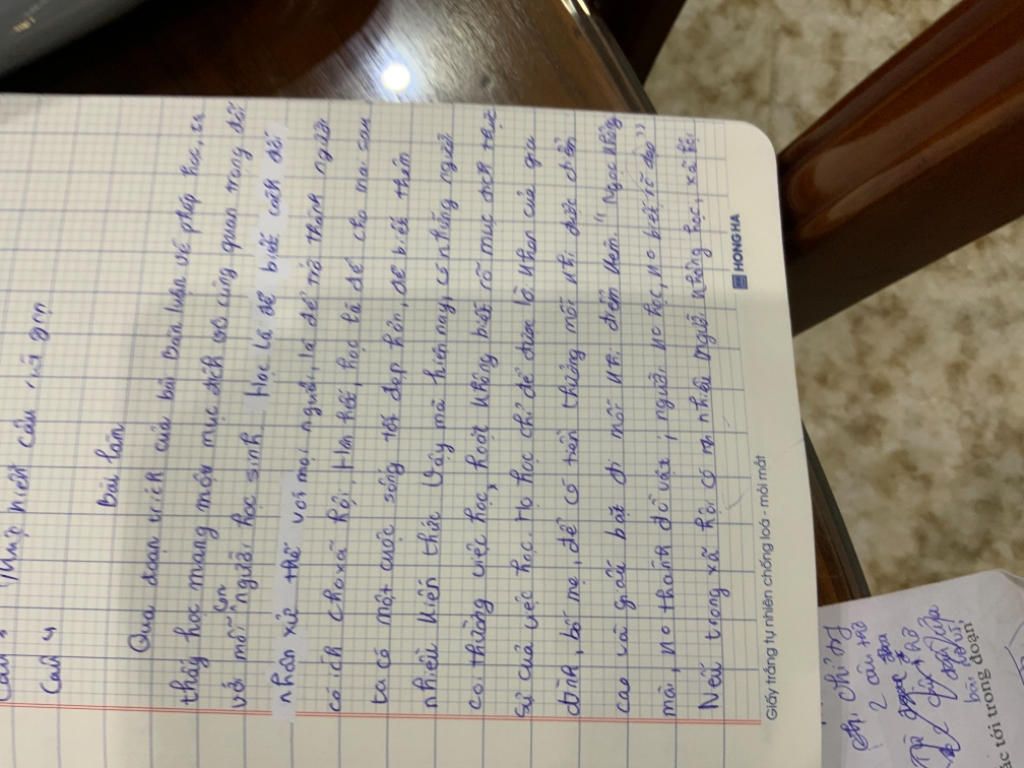 Câu 4
Bài làm
Qua đoạn trích của bài Bàn luận về phép học, ta
thấy học mang một mục đích vô cùng quan trọng đối
với mỗi con người học sinh. Học là để biết cách đối
nhân xử thế với mọi người, là để trở thành người
có ích cho xã hội. Hơn hết, học là để cho mai sau
ta có một cuộc sống tốt đẹp hơn, để biết thêm
nhiều kiến thức. Vậy mà hiện nay, có những người
coi thường việc học, hoặc không biết rõ mục đích thực
sự của việc học. Họ học chỉ để đua là khen của gia
đình, bố mẹ, để có tiền thưởng mỗi khi được điểm
cao và giấu bặt đi mỗi khi điểm kém. "Ngọc không
mài, no thành đồ vật; người no học, no biết rõ đạo".
Nếu trong xã hội có nhiều người không học, xã hội
HONG HA
Giấy trắng tự nhiên chống loá - mỏi mắt
2 câu thơ
bài
ác tới trong đoạn